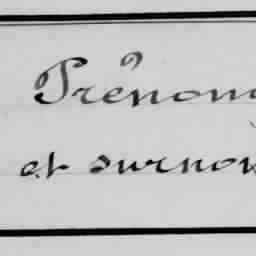 Prénom
et surnom